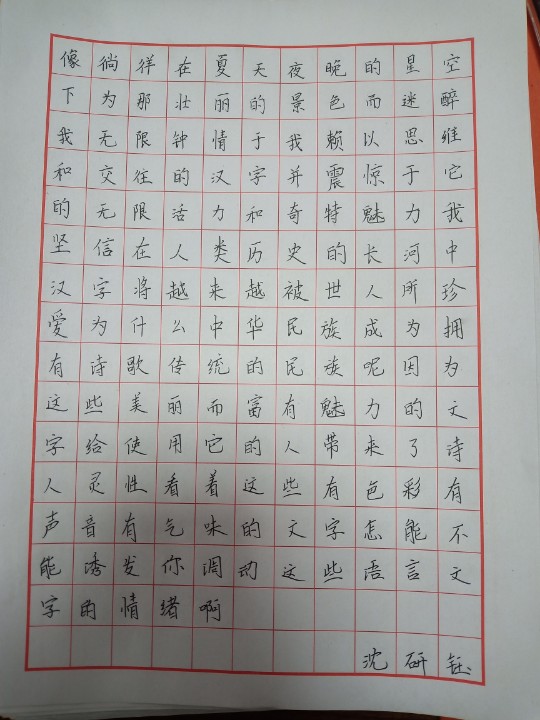 像徜徉在夏天夜晚的星空
下为那壮丽的景色而迷醉
我无限钟情于我赖以思维
和交往的汉字并震惊于它
的无限活力和奇特魅力我
坚信在人类历史的长河中
汉字将越来越被世人所珍
爱为什么中华民族成为拥
有诗歌传统的民族呢因为
这些美丽而富有魅力的文
字给使用它的人带来了诗
人灵性看着这些有色彩有
声音有气味的文字怎能不
能诱发你调动这些语言文
字的情绪啊
沈研钰